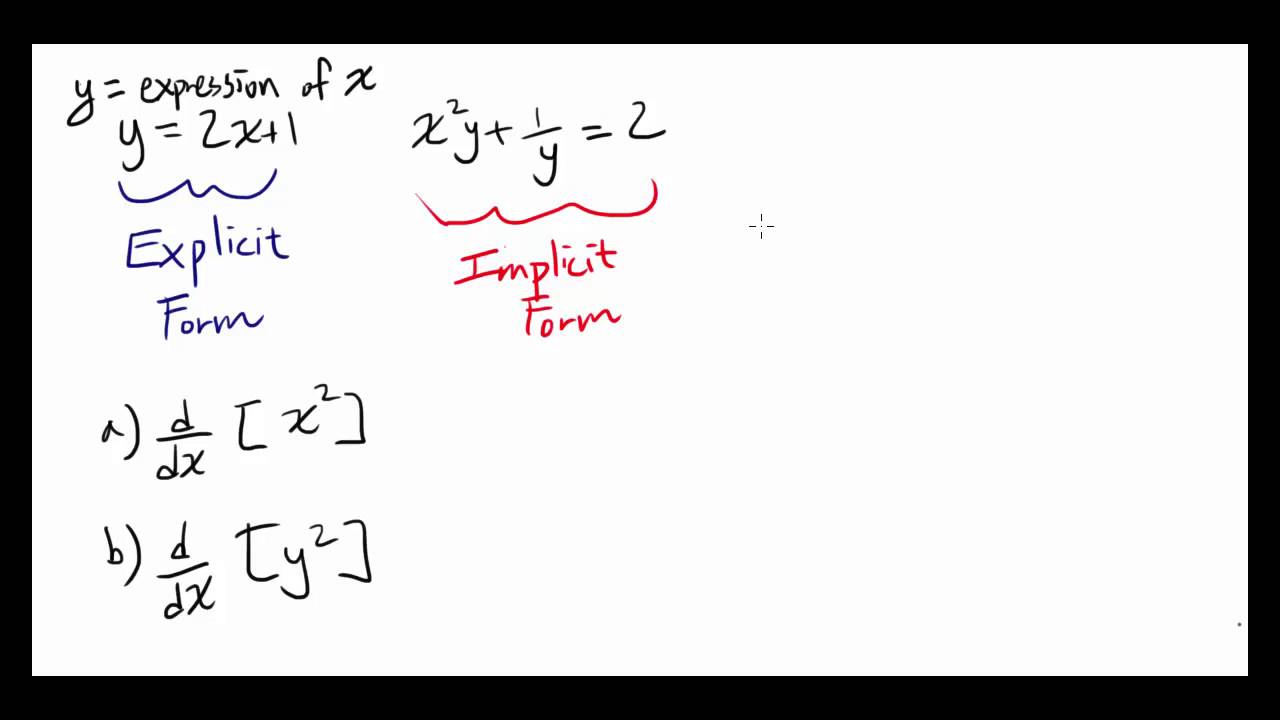 y = expression of x
y = 2x+1
x²y + 1/y = 2
Explicit
Form
Implicit
Form
a) d/dx [x²]
b) d/dx [y²]